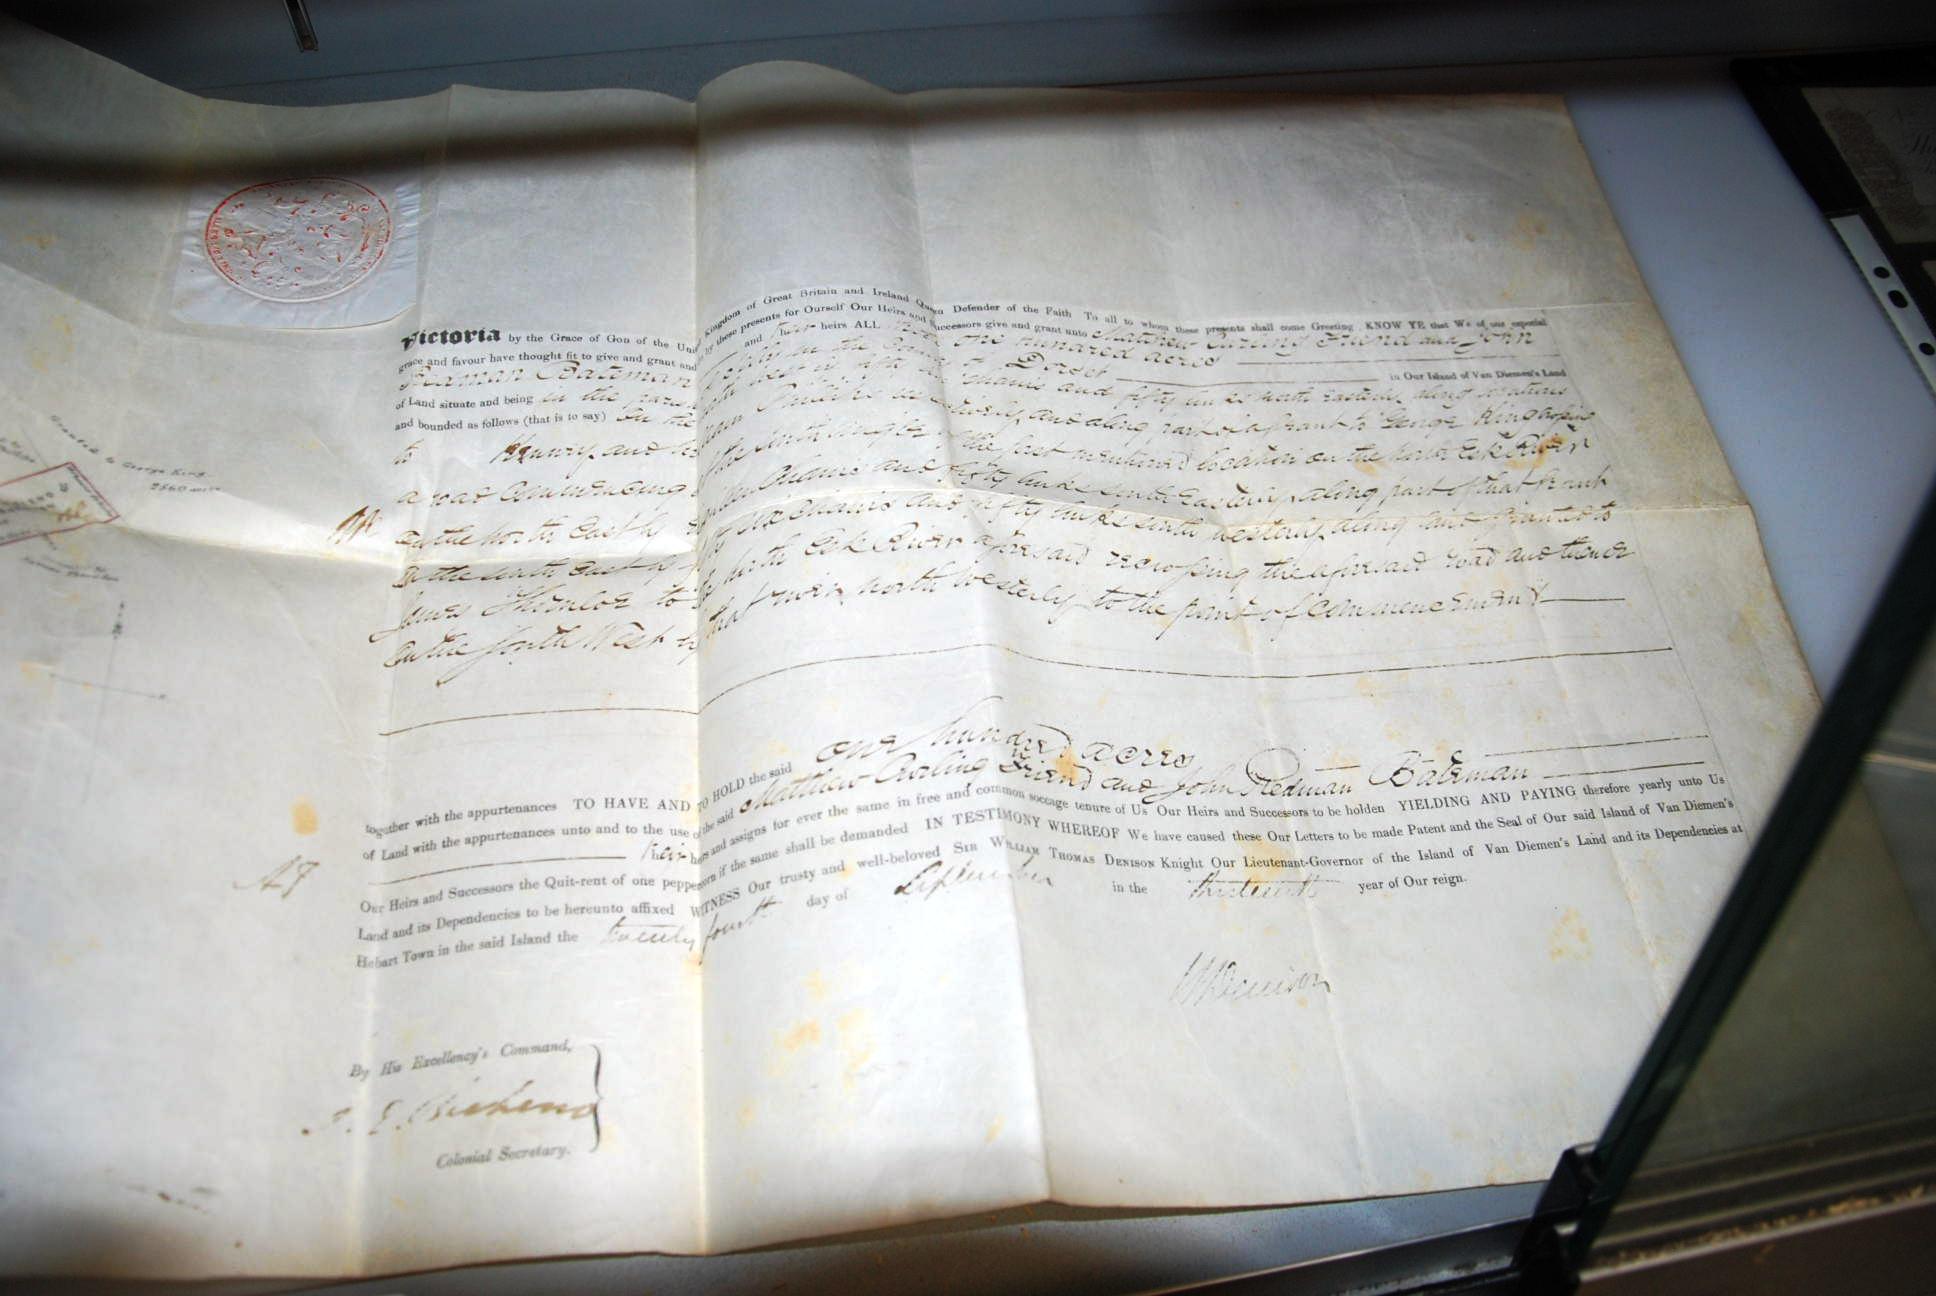 Granted to George King
2560 acres
Victoria by the Grace of God of the United Kingdom of Great Britain and Ireland Queen Defender of the Faith To all to whom these presents shall come Greeting KNOW YE that We of our especial
grace and favour have thought fit to give and grant and by these presents for Ourself Our Heirs and Successors give and grant unto Matthew Curling Friend and John
Redman Bateman and their heirs ALL one hundred acres
of Land situate and being in the parish in the County of Dorset in Our Island of Van Diemen's Land
and bounded as follows (that is to say) On the north west by fifty chains and fifty links north easterly along locations
to Henury and and along part of a grant to George King
a road commencing at the north angle of the first mentioned location on the North Esk River
on the north east by chains and fifty links south easterly along part of that grant
on the south east by fifty six chains and fifty links south westerly along land granted to
James Thornloe to the north Esk River aforesaid recrossing the aforesaid road and thence
on the South West by that river north westerly to the point of commencement
together with the appurtenances TO HAVE AND TO HOLD the said one hundred acres
of Land with the appurtenances unto and to the use of the said Matthew Curling Friend and John Redman Bateman
their heirs and assigns for ever the same in free and common soccage tenure of Us Our Heirs and Successors to be holden YIELDING AND PAYING therefore yearly unto Us
Our Heirs and Successors the Quit-rent of one peppercorn if the same shall be demanded IN TESTIMONY WHEREOF We have caused these Our Letters to be made Patent and the Seal of Our said Island of Van Diemen's
Land and its Dependencies to be hereunto affixed WITNESS Our trusty and well-beloved SIR WILLIAM THOMAS DENISON Knight Our Lieutenant-Governor of the Island of Van Diemen's Land and its Dependencies at
Hobart Town in the said Island the twenty fourth day of September in the thirteenth year of Our reign.
W Denison
By His Excellency's Command,
J. E. Bicheno
Colonial Secretary.